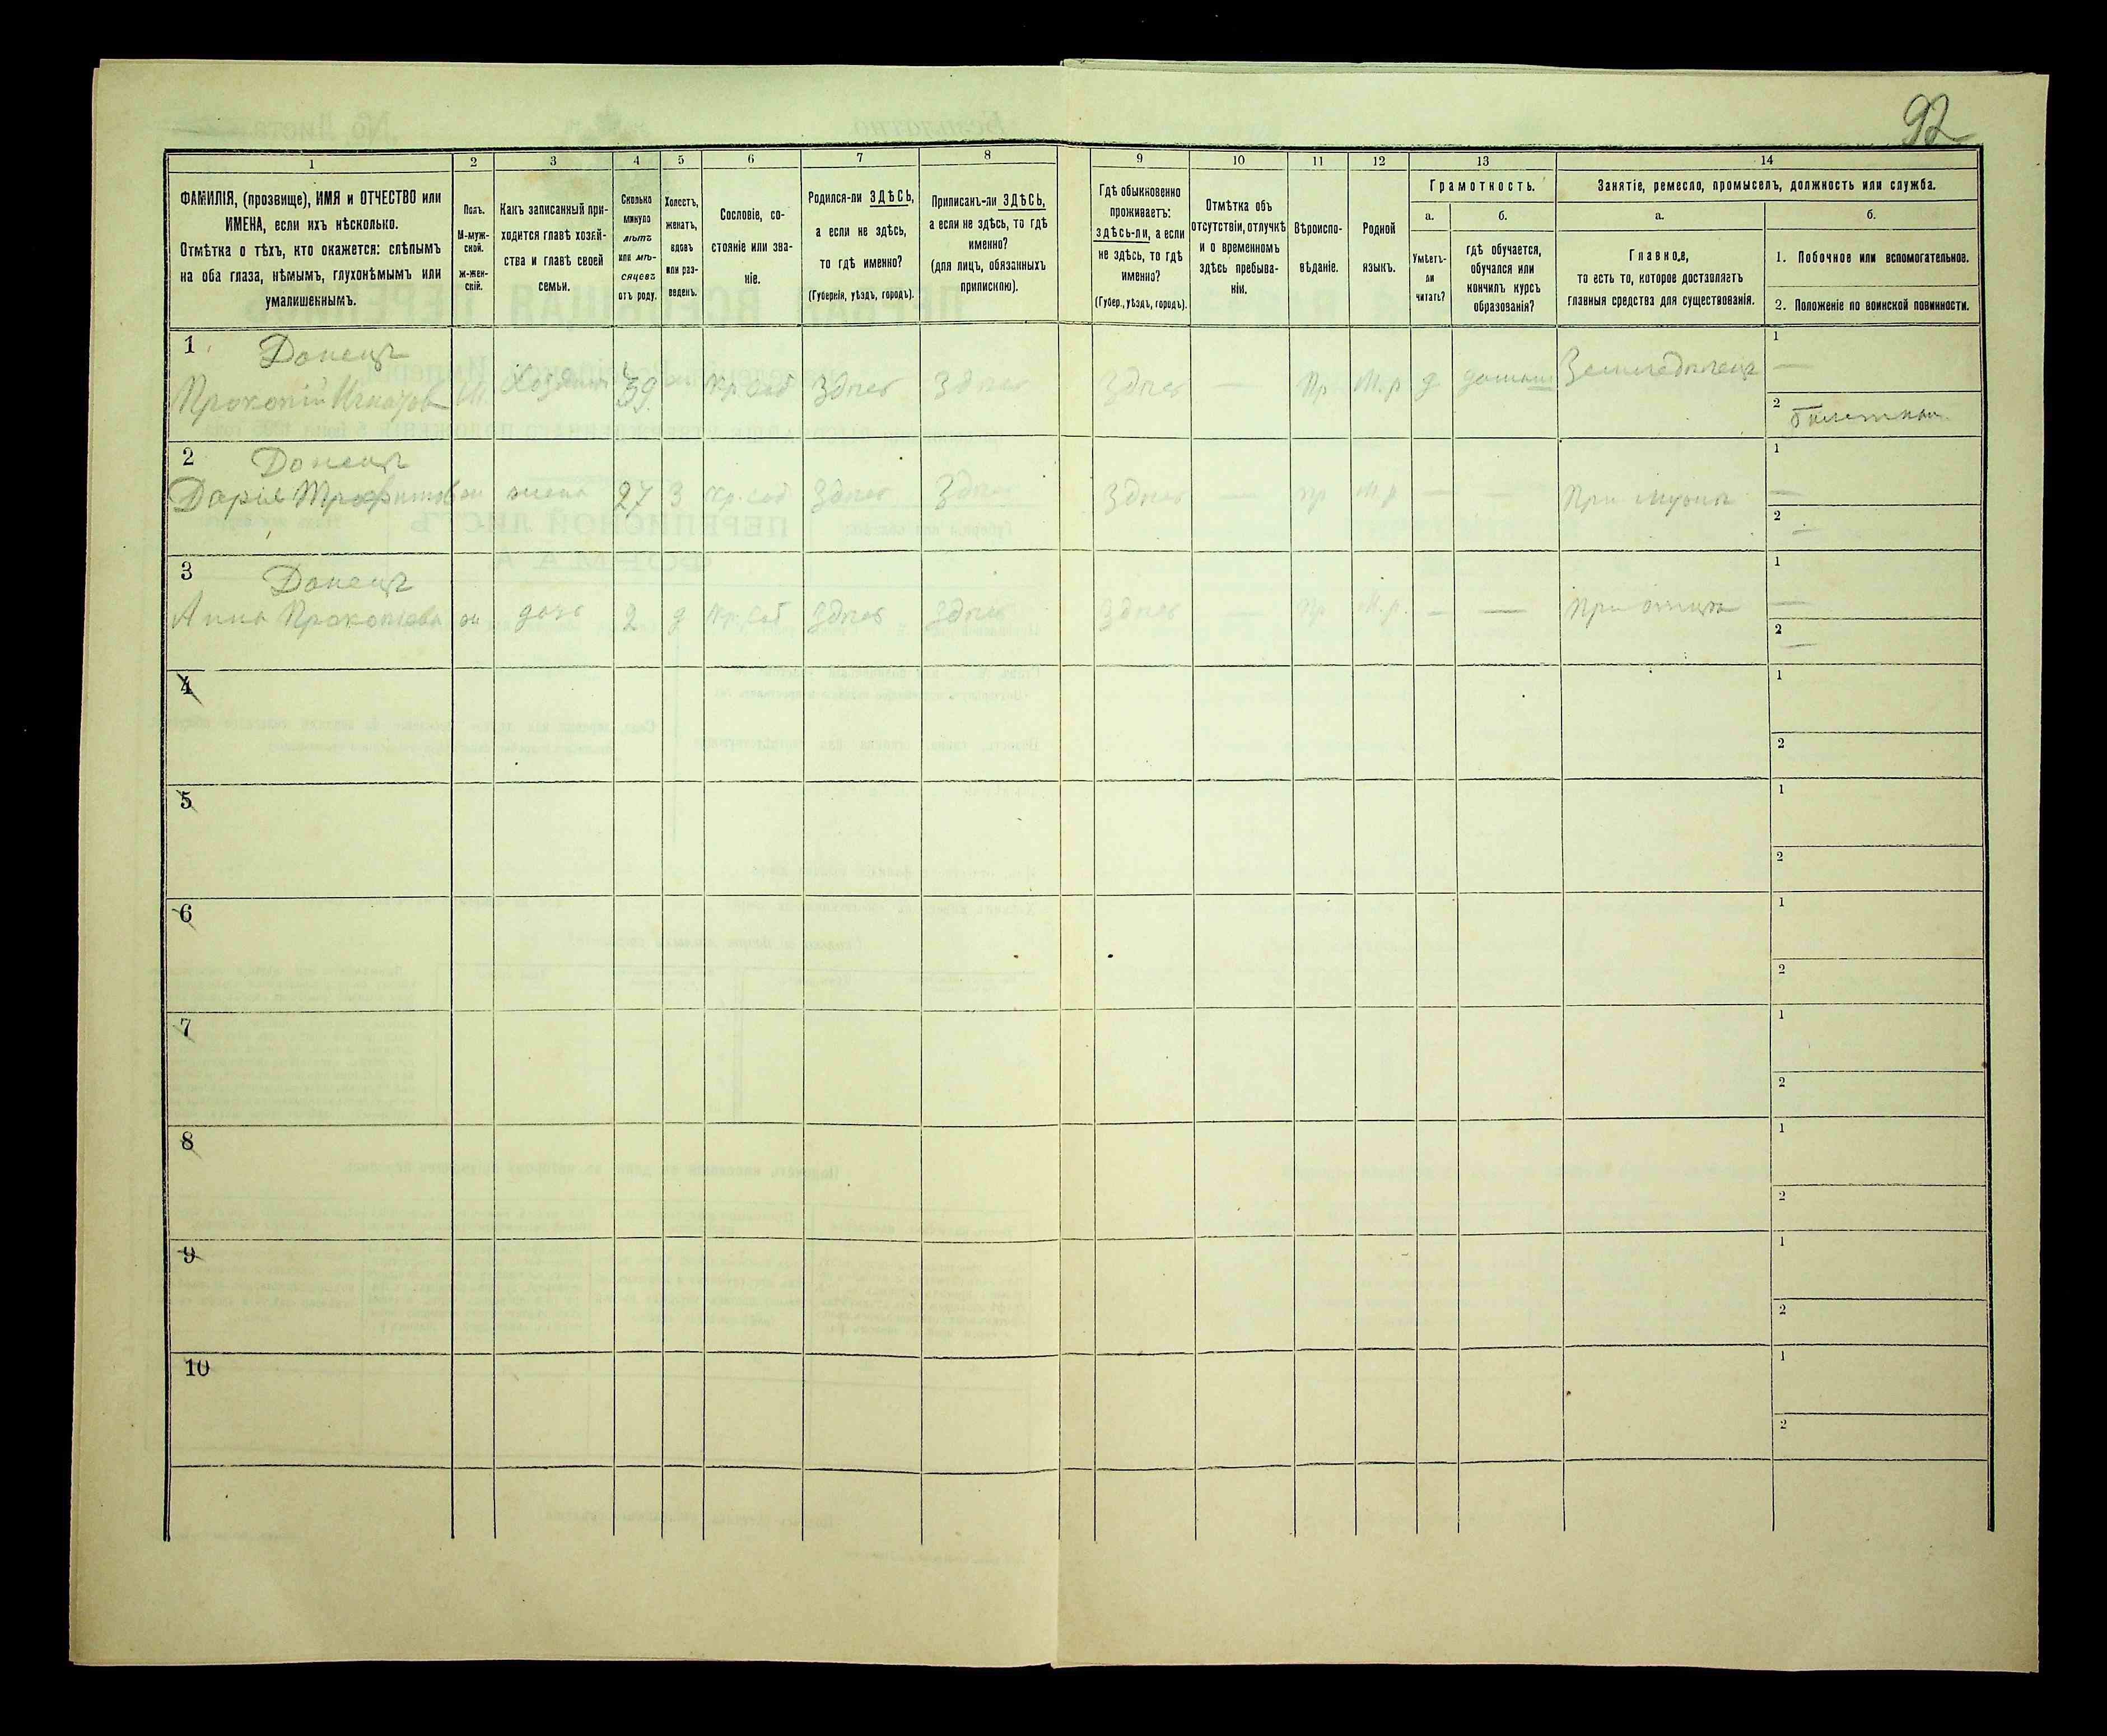 92
1
2
3
4
5
6
7
8
9
10
11
12
13
14
ФАМИЛІЯ, (прозвище), ИМЯ и ОТЧЕСТВО или
ИМЕНА, если ихъ нѣсколько.
Отмѣтка о тѣхъ, кто окажется: слѣпымъ
на оба глаза, нѣмымъ, глухонѣмымъ или
умалишеннымъ.
Полъ.
М-муж-
ской.
ж-жен-
скій.
Какъ записанный при-
ходится главѣ хозяй-
ства и главѣ своей
семьи.
Сколько
минуло
лѣтъ
или мѣ-
сяцевъ
отъ роду.
Холостъ,
женатъ,
вдовъ
или раз-
веденъ.
Сословіе, со-
стояніе или зва-
ніе.
Родился-ли ЗДѢСЬ,
а если не здѣсь,
то гдѣ именно?
(Губернія, уѣздъ, городъ).
Приписанъ-ли ЗДѢСЬ,
а если не здѣсь, то гдѣ
именно?
(для лицъ, обязанныхъ
припискою).
Гдѣ обыкновенно
проживаетъ:
здѣсь-ли, а если
не здѣсь, то гдѣ
именно?
(Губер., уѣздъ, городъ).
Отмѣтка объ
отсутствіи, отлучкѣ
и о временномъ
здѣсь пребыва-
ніи.
Вѣроиспо-
вѣданіе.
Родной
языкъ.
Грамотность.
а.
Умѣетъ-
ли
читать?
б.
гдѣ обучается,
обучался или
кончилъ курсъ
образованія?
Занятіе, ремесло, промыселъ, должность или служба.
а.
Главное,
то есть то, которое доставляетъ
главныя средства для существованія.
б.
1. Побочное или вспомогательное.
2. Положеніе по воинской повинности.
1 Донецъ
Прокопій Игнатов М. Хозяинъ 39 Кр. соб Здѣсь Здѣсь Здѣсь — Пр М.р д Земледѣлецъ 1 —
2
2 Донецъ
Дарія ж жена 27 З Кр. соб Здѣсь Здѣсь Здѣсь — Пр М.р — — При мужѣ 1 —
2 —
3 Донецъ
Анна Прокопіева ж дочь 2 д Кр. соб Здѣсь Здѣсь Здѣсь — Пр М.р. — — При отцѣ 1 —
2 —
4 1
2
5 1
2
6 1
2
7 1
2
8 1
2
9 1
2
10 1
2